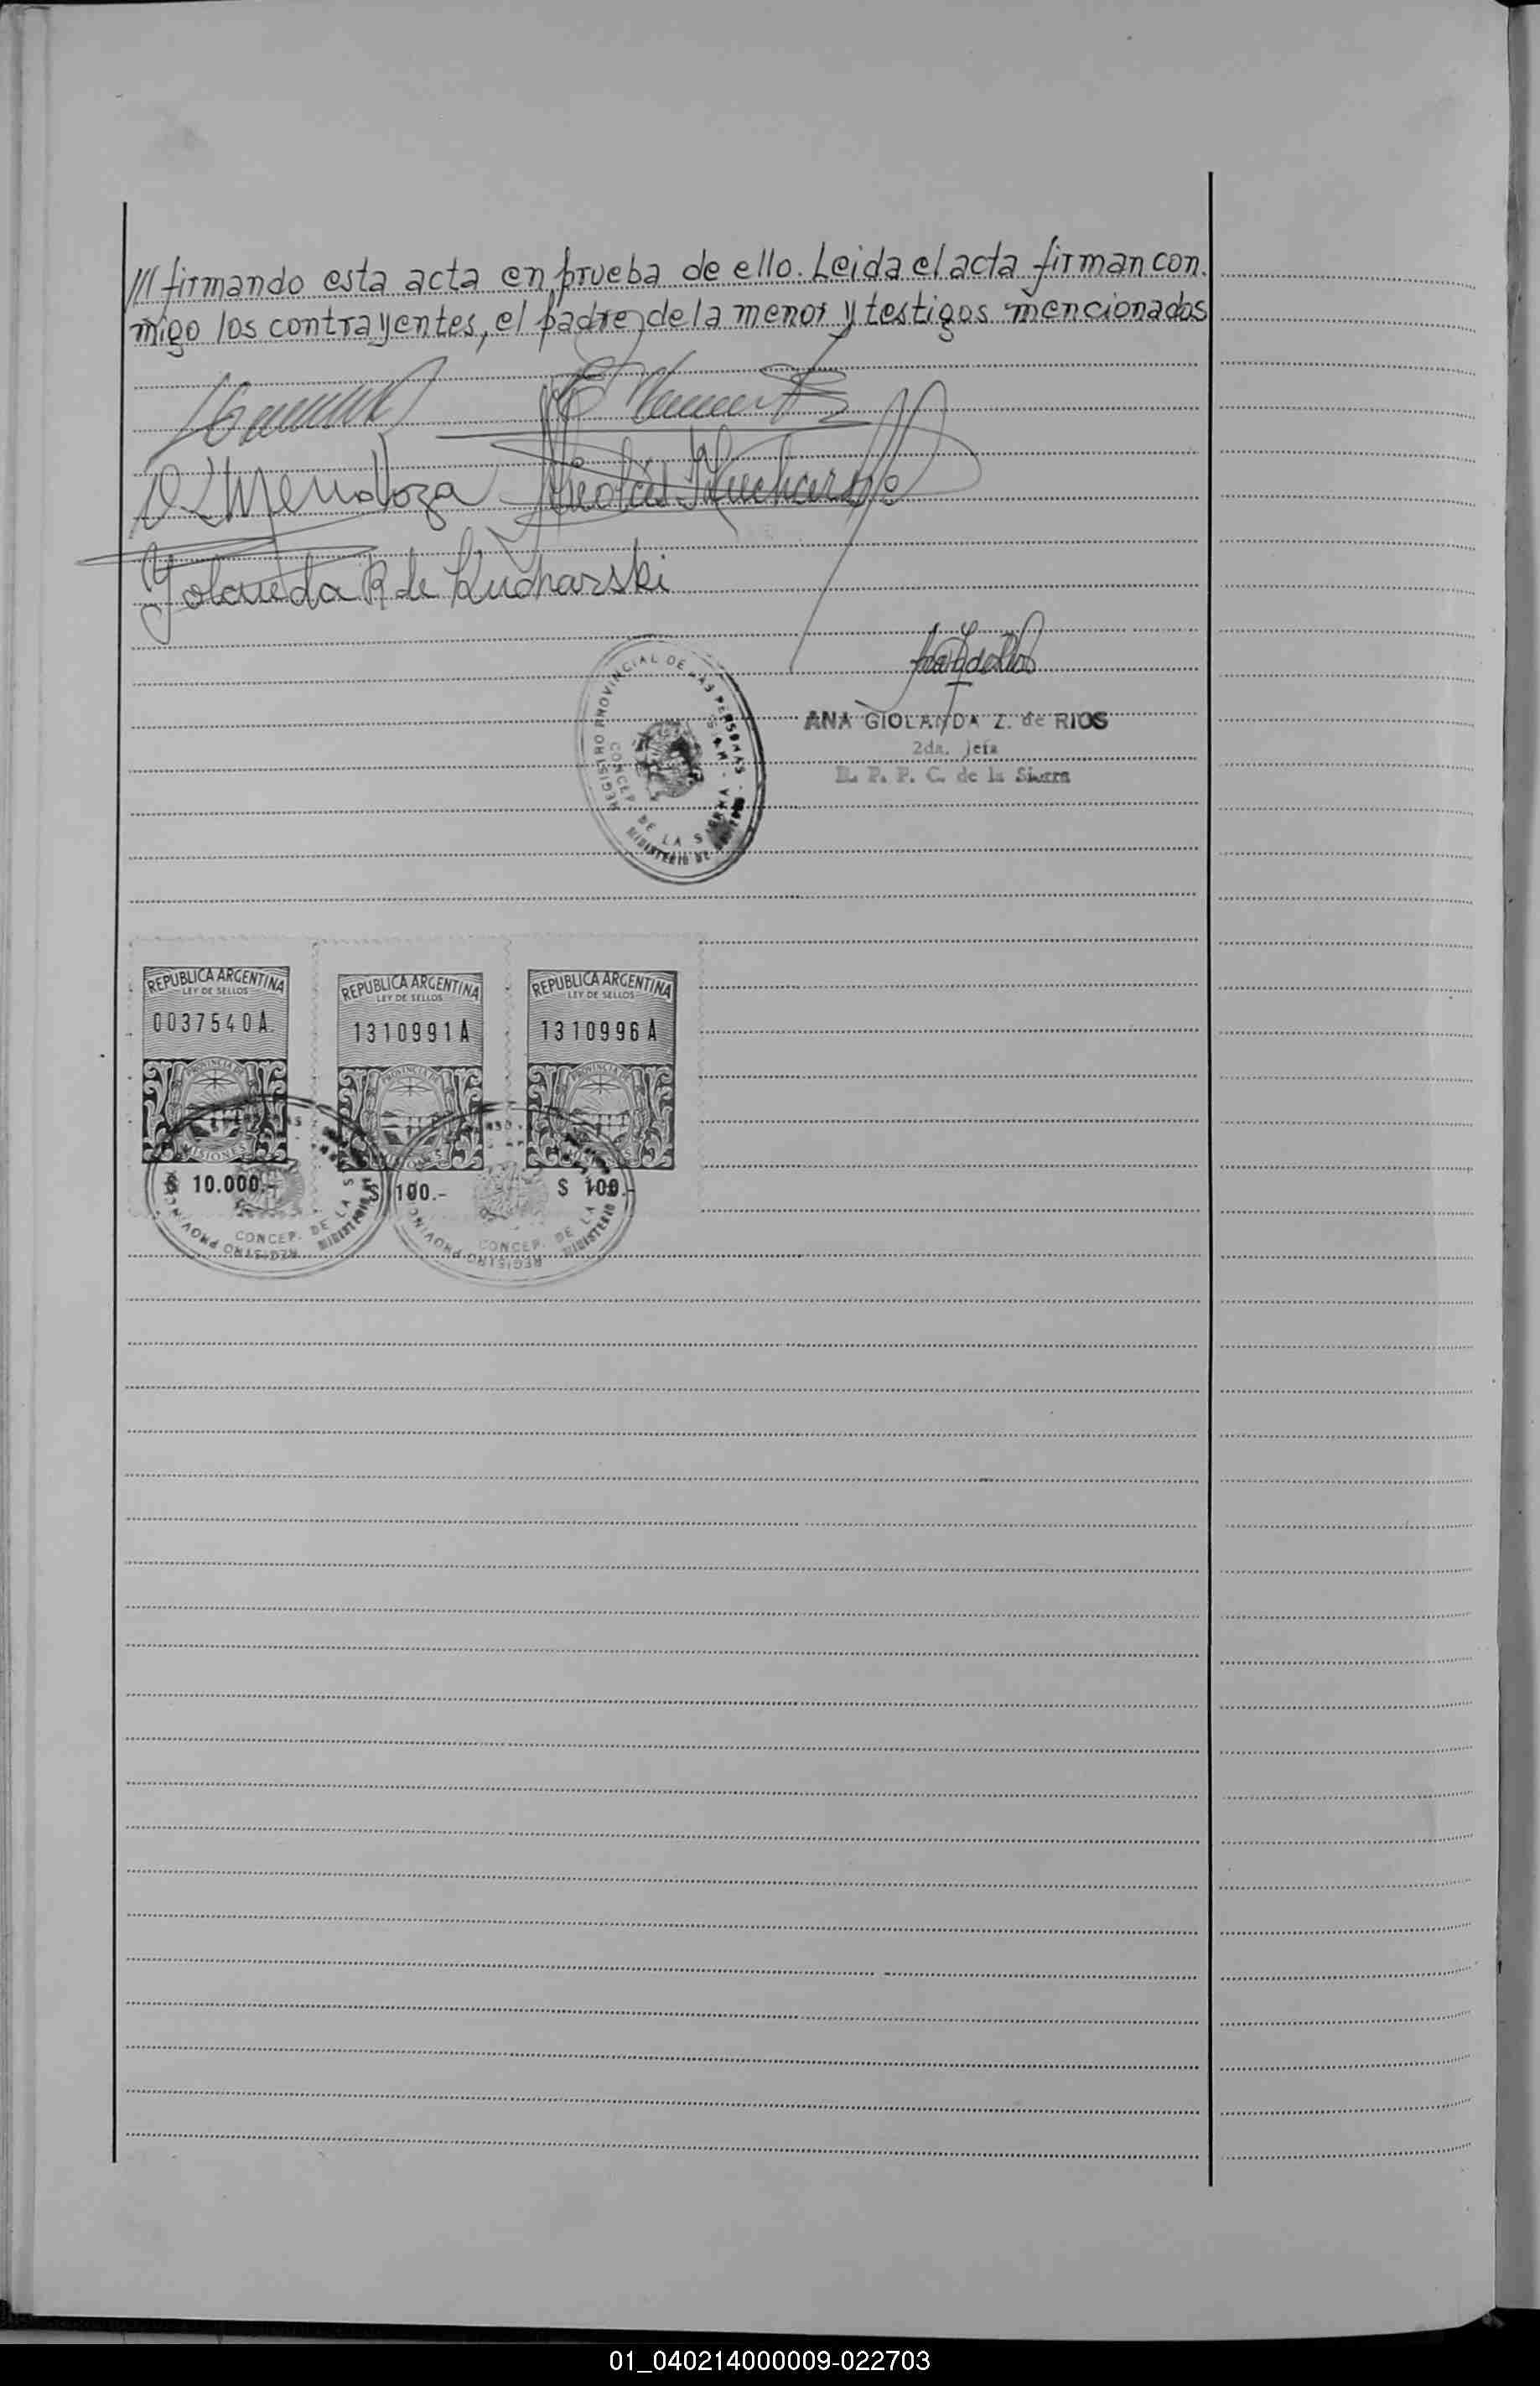 /// firmando esta acta en prueba de ello. Leida el acta firman con.
migo los contrayentes, el padre de la menor y testigos mencionados
Mendoza Nicolás Kucharski
Yolanda R de Kucharski
REGISTRO PROVINCIAL DE LAS PERSONAS
CONCEP. DE LA SIERRA
MINISTERIO DE
ANA GIOLANDA Z. de RIOS
2da. Jefa
R. P. P. C. de la Sierra
REPUBLICA ARGENTINA REPUBLICA ARGENTINA REPUBLICA ARGENTINA
LEY DE SELLOS LEY DE SELLOS LEY DE SELLOS
0037540A 1310991A 1310996A
PROVINCIA DE PROVINCIA DE PROVINCIA DE
MISIONES MISIONES MISIONES
$ 10.000.- $ 100.- $ 100.-
CONCEP. DE LA S CONCEP. DE LA
REGISTRO PROVINC MINISTERIO REGISTRO PROVINC MINISTERIO
01_040214000009-022703